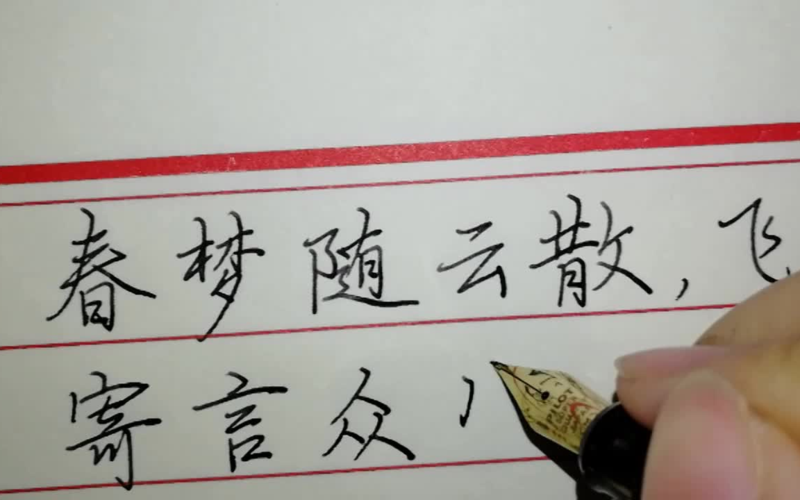 春梦随云散,飞
寄言众
PILOT